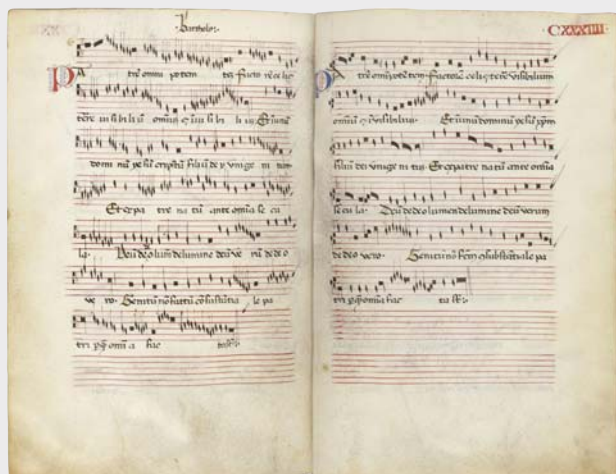 Bartholo:
PA tre omni poten tez facto re celi
terre vi si bi li ū omniū & ī vi si bi li ū. Et ī unū
domi nū ihesū cristū filiū de y unige ni tum
Et ex pa tre na tū ante omīa se cu
la. Deū de deo lumen de lumine deū ve rū de deo
ve ro. Genitū nō factū cōsustātia le pa
tri omīa fac
CXXXIIII
PA tre omīpotē tem. factorē celi & terre visibilium
omniū & ī visibilium. Et ī unū dominū
filiū dei unige nitū. Et ex pa tre na tū ante omīa
se cu la. Deū de deo lumen de lumine deū verum
de deo vero. Genitū nō le pa
tri omīa fac